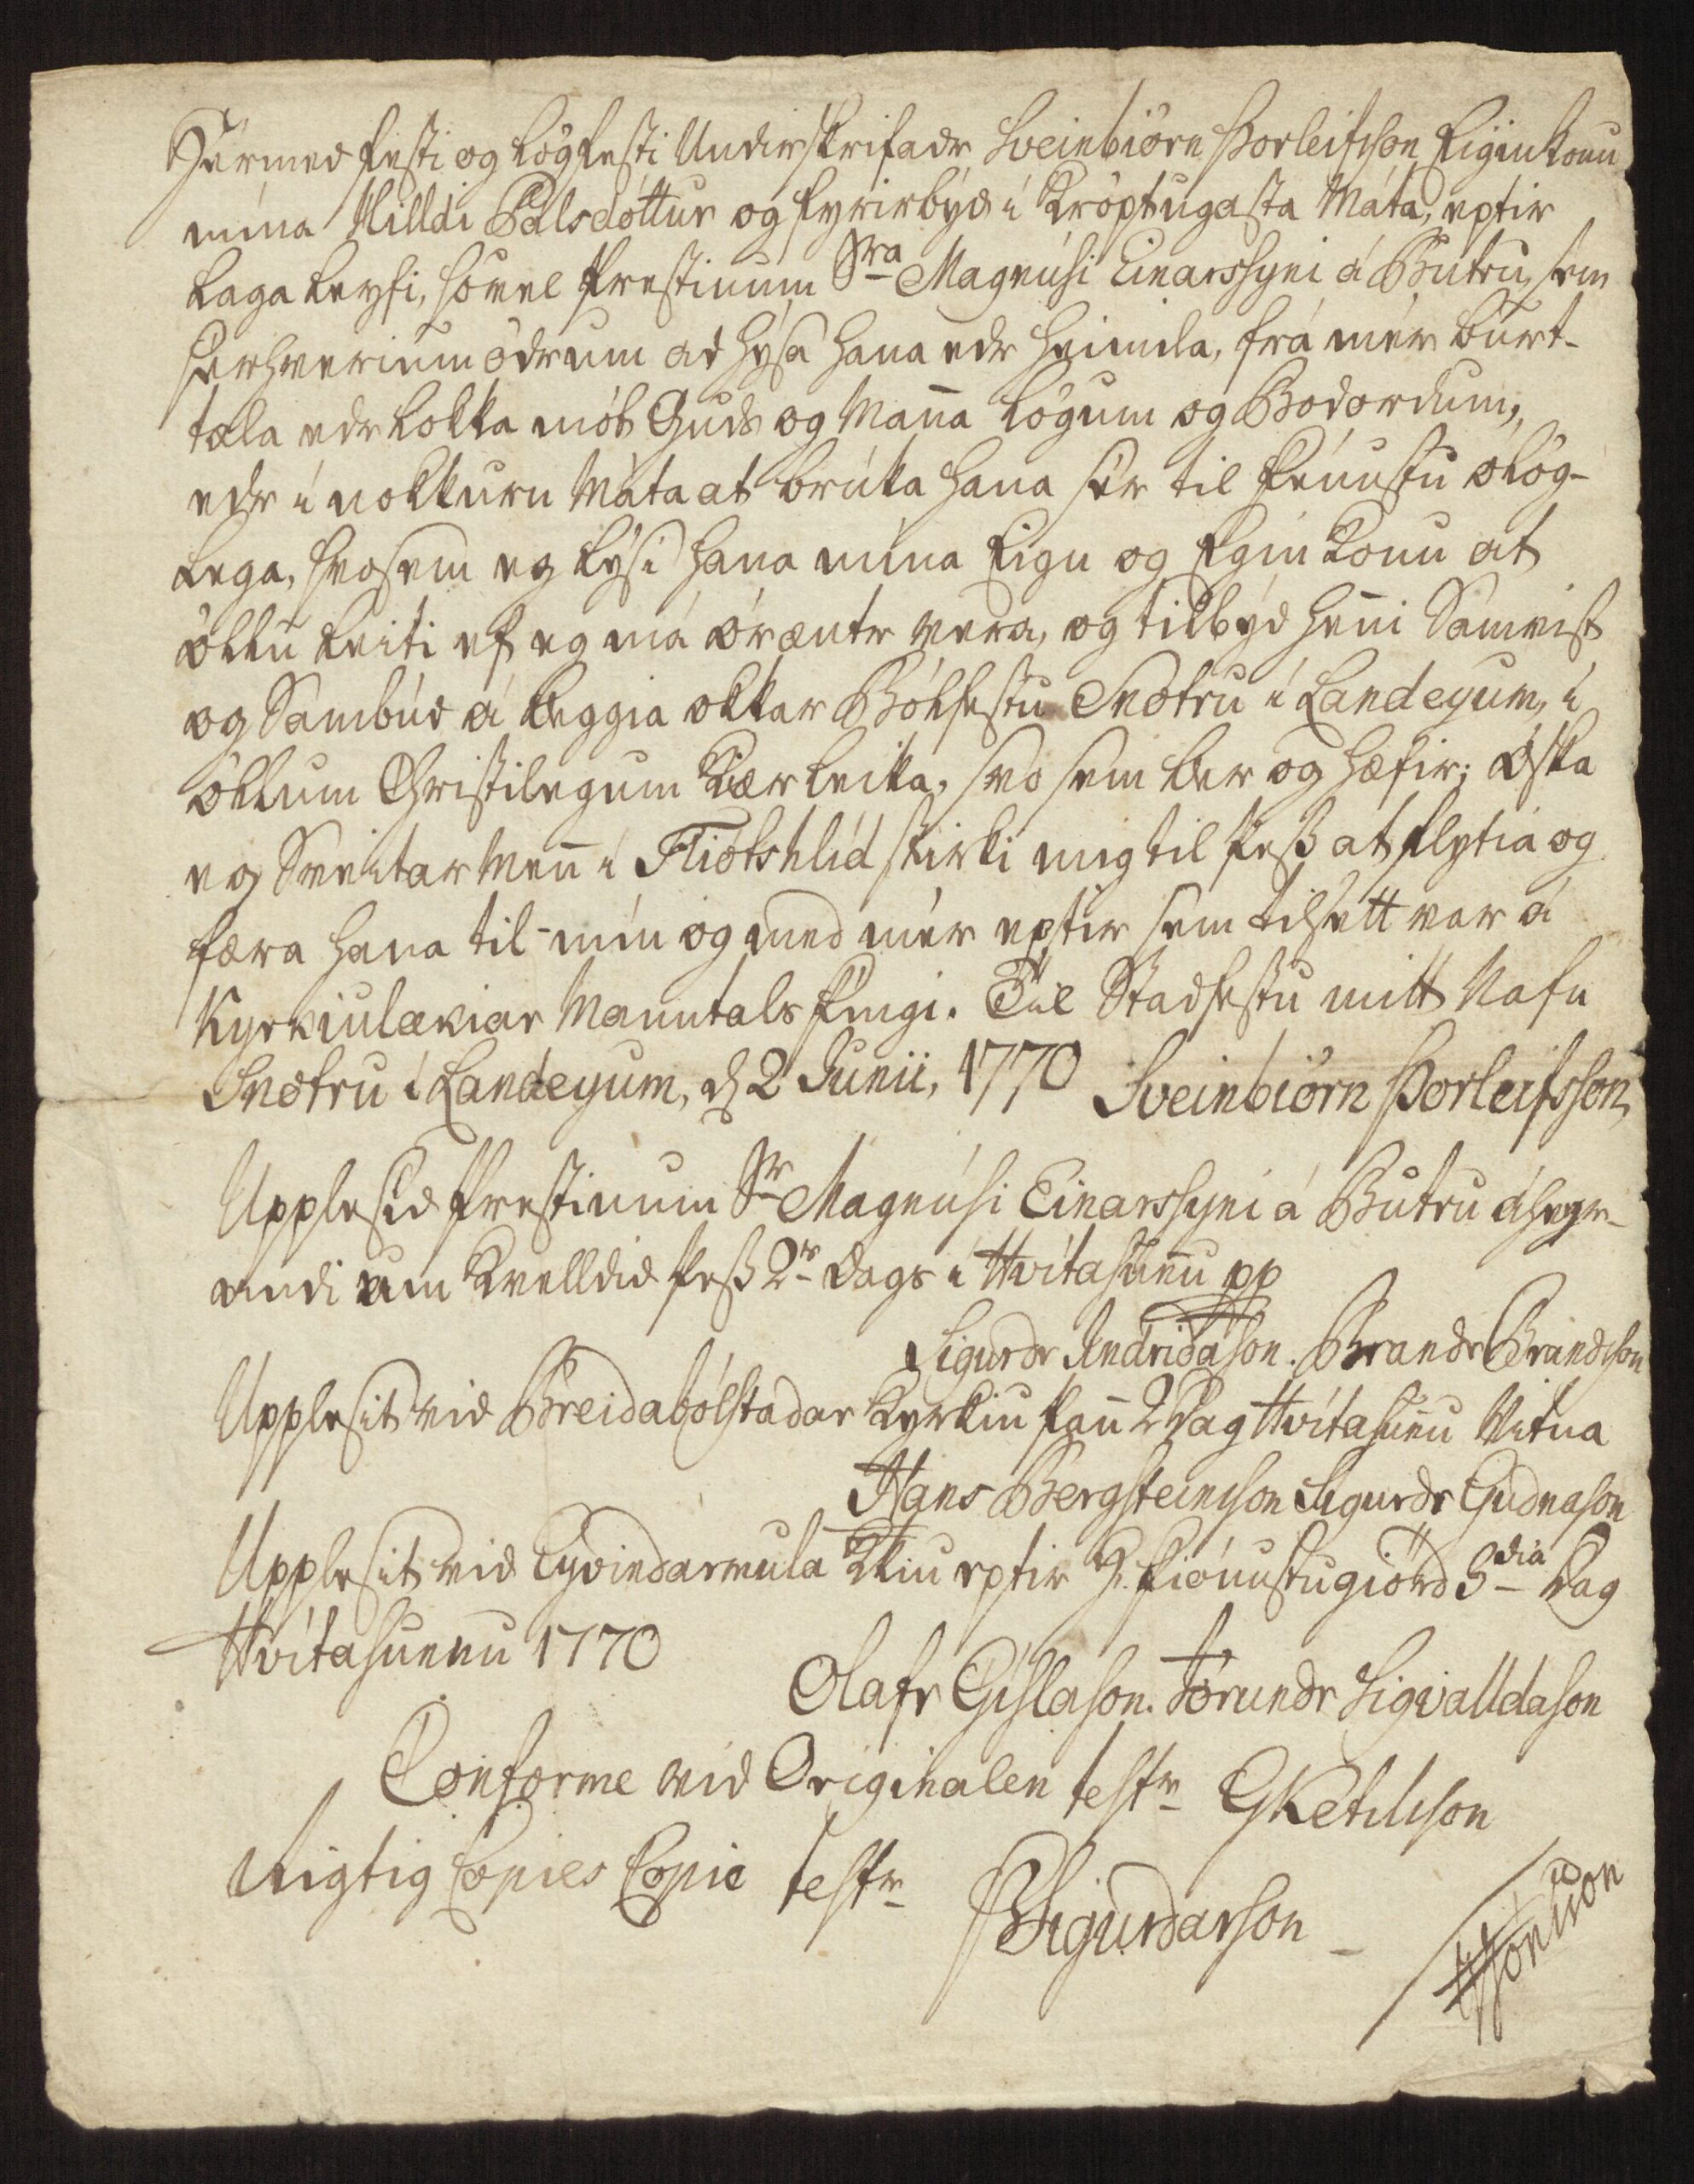 Hérmed festi og lögfesti Undirskrifadr Sveinbiörn Þorleifsson Eiginkonu
mína Hilldi Pálsdóttur og fyrirbýd í kröptugasta Máta, eptir
Laga leyfi, sóvel Prestinum Sra Magnúsi Einarssyni á Butru, sem
sérhverium ödrum ad hýsa hana edr heimila, frá mér burt-
tæla edr lokka mót Guds og Manna Lögum og Bodordum,
edr í nokkurn Máta at brúka hana sér til þénustu ólög-
lega, svosem eg lýsi hana mína Eign og Egin Konu at
öllu leiti ef eg má óræntr vera, og tilbýd henni Samvist
og Sambúd á beggia okkar Bólfestu Snotru í Landeyum, í
öllum Christilegum Kærleika, svo sem ber og hæfir; Óska
eg Sveitar Menn í Fliótshlíd stirki mig til þess at flytia og
færa hana til mín og med mér eptir sem tilsett var á
Kyrkiulækiar Manntals þingi. Til Stadfestu mitt Nafn
Snotru í Landeyum, d 2 Junii, 1770 Sveinbiörn Þorleifsson,
Upplesid Prestinum Sr Magnúsi Einarssyni á Butru áheyr-
andi um Kvelldid þess 2rs Dags í Hvítasunnu pp
Sigurdr Indridason. Brandr Brandsson
Upplesit vid Breidabólstadar Kyrkiu þann 2 Dag Hvítasunnu Vitna
Hans Bergsteinsson Sigurdr Gudnason
Upplesit vid Eyvindarmula Kkiu eptir H. þiónustugiörd 3dia Dag
Hvítasunnu 1770
Olafr Gislason. Jörundr Sigvalldason
Conforme vid Originalen testr GKetilsson
Rigtig Copies Copie testr
Sigurdarson